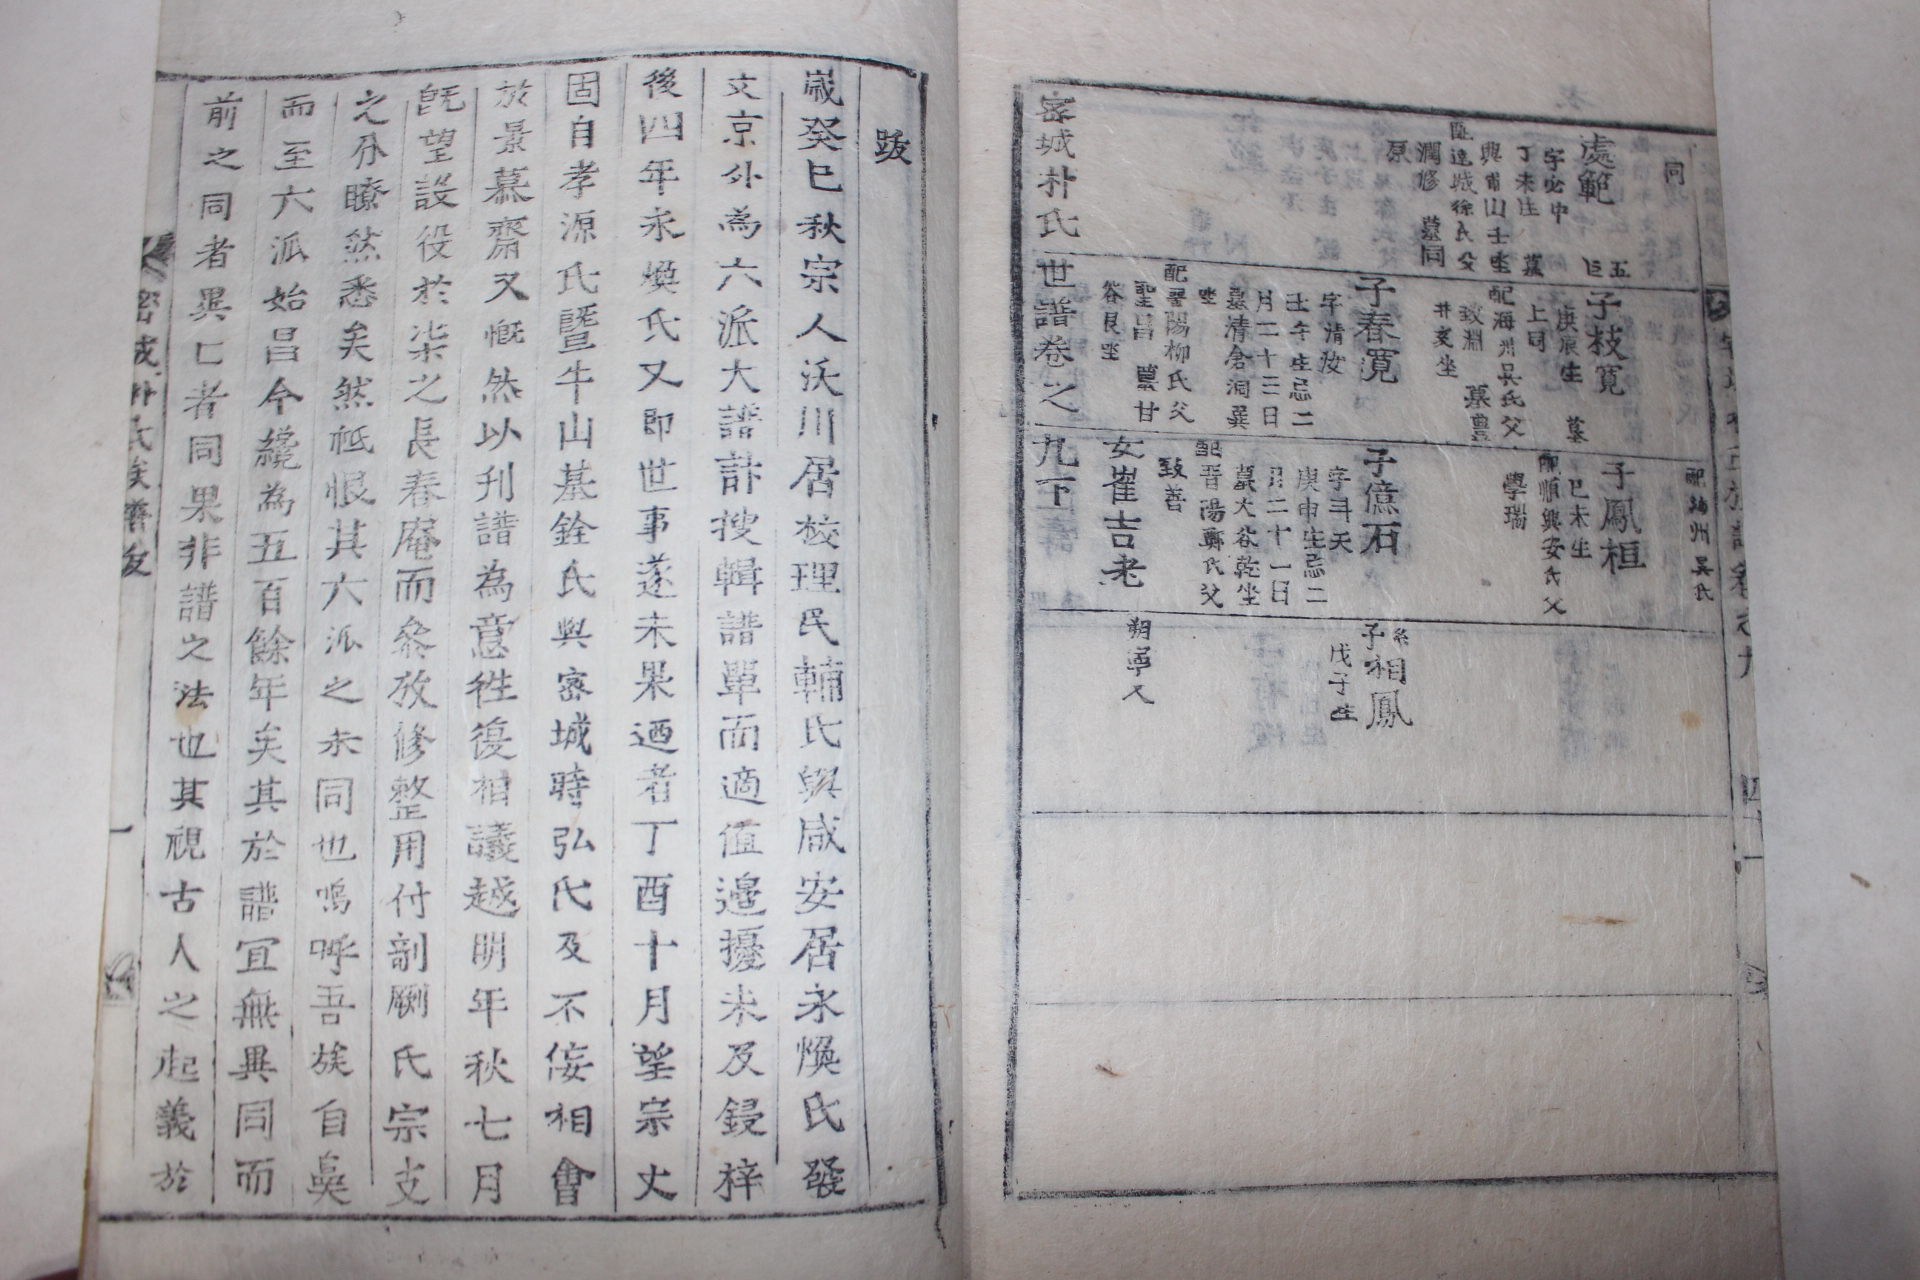 同
處範
字必中
丁未生 墓
興甫山壬坐
配達城徐氏父
潤修 墓同
原
五
巨
子枝寛
庚辰生 墓
上同
配海州吳氏父
致淵 墓豊
井亥坐
子春寛
字清汝
壬午生忌二
月二十三日
墓清倉洞巽
坐
配晋陽柳氏父
聖昌 墓甘
谷艮坐
配海州吳氏
子鳳桓
己未生
配順興安氏父
學瑞
子億石
字斗天
庚申生忌二
月二十一日
墓大谷乾坐
配晋陽鄭氏父
致善
女崔吉老
朔寧人
系
子相鳳
戊子生
密城朴氏世譜卷之九下
跋
歲癸巳秋宗人沃川居校理民輔氏與咸安居永煥氏發
文京外為六派大譜計搜輯譜單而適值邊擾未及鋟梓
後四年永煥氏又即世事遂未果迺者丁酉十月望宗丈
固自孝源氏曁牛山基銓氏與密城時弘氏及不侫相會
於景慕齋又慨然以刋譜為意徃復相議越明年秋七月
旣望設役於柒之長春庵而叅攷修整用付剞劂氏宗支
之分瞭然悉矣然秪恨其六派之未同也嗚呼吾族自奠
而至六派始昌今纔為五百餘年矣其於譜宜無異同而
前之同者異亡者同果非譜之法也其視古人之起義於
密城朴氏族譜跋
一